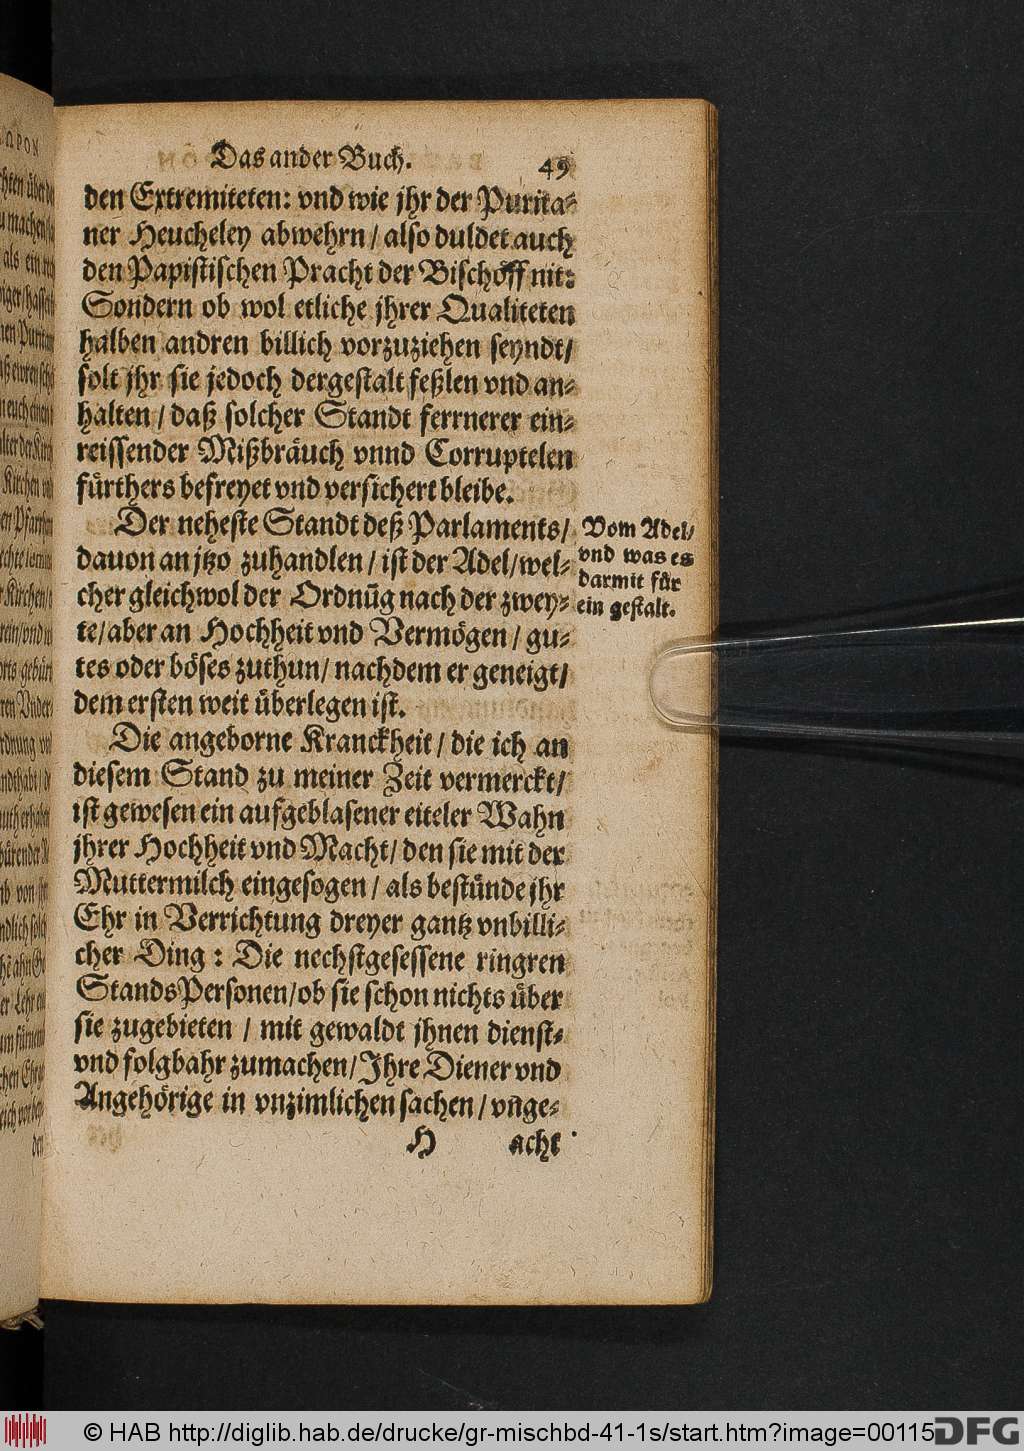 Das ander Buch. 49
den Extremiteten: vnd wie jhr der Purita-
ner Heucheley abwehrn / also duldet auch
den Papistischen Pracht der Bischöff nit:
Sondern ob wol etliche jhrer Qualiteten
halben andren billich vorzuziehen seyndt/
solt jhr sie jedoch dergestalt feßlen vnd an-
halten / daß solcher Standt ferrnerer ein-
reissender Mißbräuch vnnd Corruptelen
fürthers befreyet vnd versichert bleibe.
Der neheste Standt deß Parlaments/
dauon an jtzo zuhandlen / ist der Adel/wel-
cher gleichwol der Ordnūg nach der zwey-
te/aber an Hochheit vnd Vermögen / gu-
tes oder böses zuthun/ nachdem er geneigt/
dem ersten weit überlegen ist.
Vom Adel/
vnd was es
darmit für
ein gestalt.
Die angeborne Kranckheit / die ich an
diesem Stand zu meiner Zeit vermerckt/
ist gewesen ein aufgeblasener eiteler Wahn
jhrer Hochheit vnd Macht/ den sie mit der
Muttermilch eingesogen / als bestünde jhr
Ehr in Verrichtung dreyer gantz vnbilli-
cher Ding : Die nechstgesessene ringren
StandsPersonen/ob sie schon nichts über
sie zugebieten / mit gewaldt jhnen dienst-
vnd folgbahr zumachen/Ihre Diener vnd
Angehörige in vnzimlichen sachen / vnge-
H acht
© HAB http://diglib.hab.de/drucke/gr-mischbd-41-1s/start.htm?image=00115
DFG